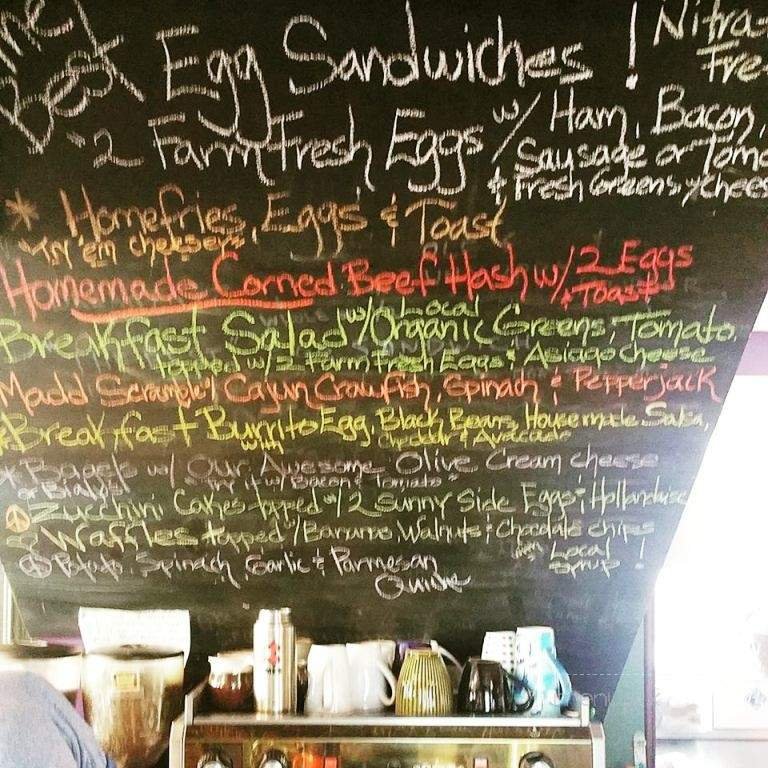 Best Egg Sandwiches!
Nitra
Fre
~2 Farm Fresh Eggs w/ Ham, Bacon,
Sausage or Toma
& Fresh Greens y chees
* Homefries, Eggs & Toast
Homemade Corned Beef Hash w/ 2 Eggs
+ Toast
Breakfast Salad w/ Local Organic Greens, Tomato,
topped w/ 2 Farm Fresh Eggs & Asiago cheese
Madd Scramble! Cajun Crawfish, Spinach & Pepperjack
Breakfast Burrito Egg, Black Beans, Housemade Salsa,
with cheddar & Avacado
* Bagels w/ Our Awesome Olive Cream cheese
or Bialys! w/ Bacon & Tomato
Zucchini Cakes topped w/ 2 Sunny Side Eggs & Hollandaise
Waffles topped w/ Bananas, Walnuts & Chocolate chips
Local Syrup!
Potato, Spinach, Garlic & Parmesan
Quiche